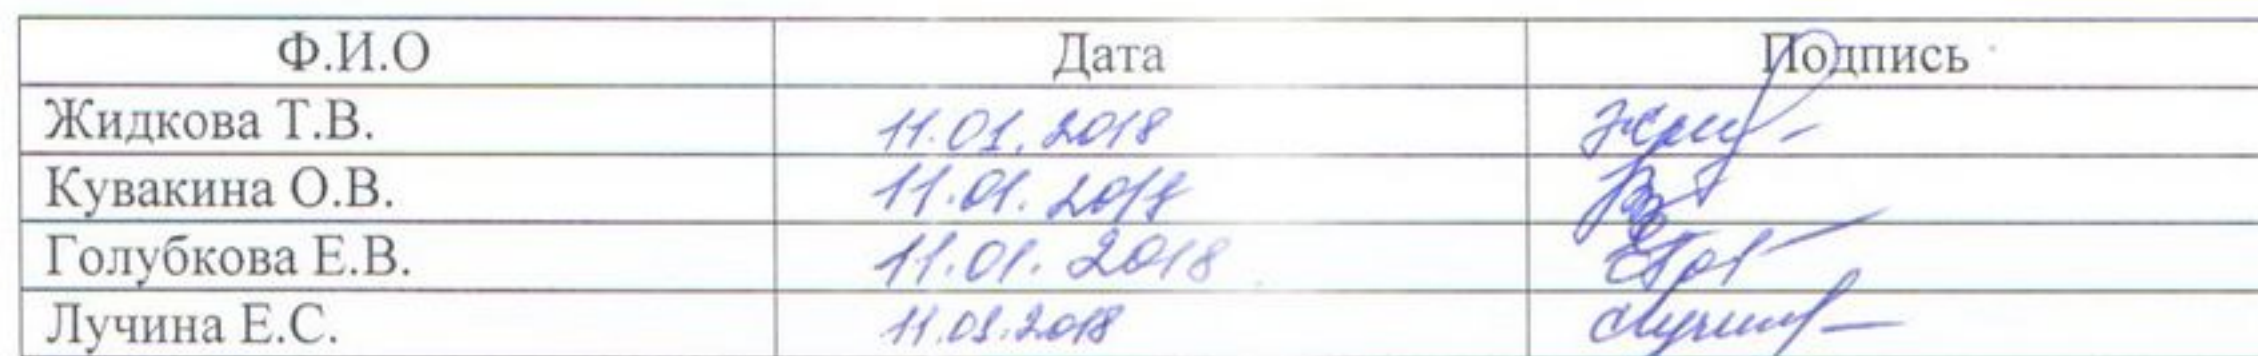 Ф.И.О Дата Подпись
Жидкова Т.В. 11.01.2018
Кувакина О.В. 11.01.2018
Голубкова Е.В. 11.01.2018
Лучина Е.С. 11.01.2018